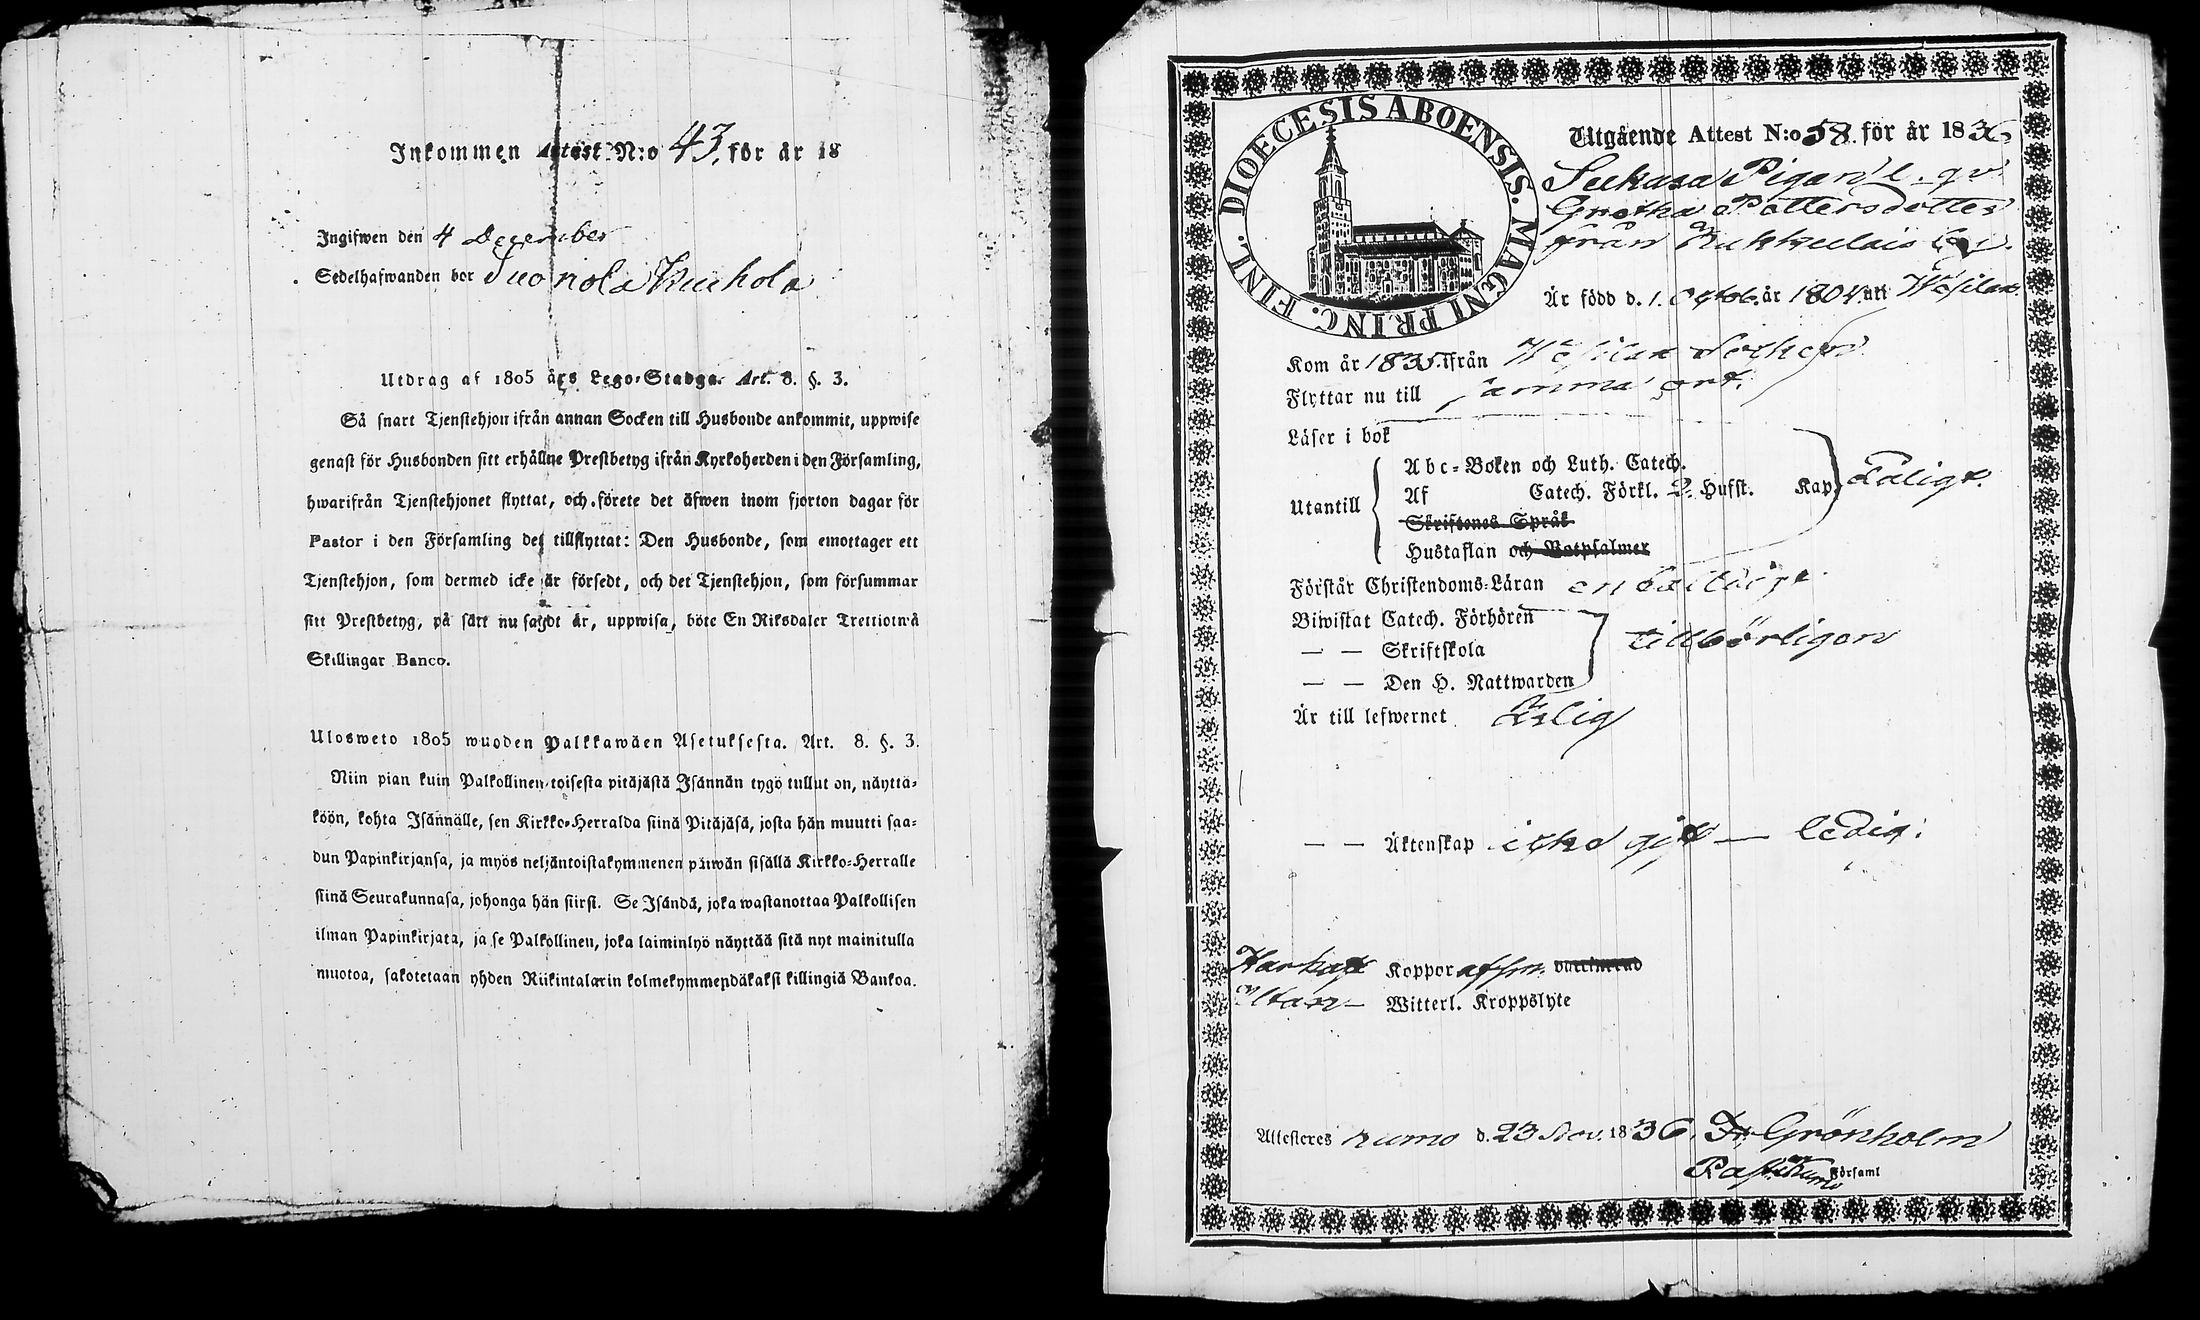 Inkommen Attest N:o 43. för år 18
Ingifwen den 4 December
Sedelhafwanden bor Suonola Kuhola
Utdrag af 1805 års Lego-Stadga. Art. 8. §. 3.
Så snart Tjenstehjon ifrån annan Socken till Husbonde ankommit, uppwise
genast för Husbonden sitt erhållne Prestbetyg ifrån Kyrkoherden i den Församling,
hwarifrån Tjenstehjonet flyttat, och förete det äfwen inom fjorton dagar för
Pastor i den Församling det tillflyttat: Den Husbonde, som emottager ett
Tjenstehjon, som dermed icke är försedt, och det Tjenstehjon, som försummar
sitt Prestbetyg, på sätt nu sagdt är, uppwisa, böte En Riksdaler Trettiotwå
Skillingar Banco.
Ulosweto 1805 wuoden Palkkawäen Asetuksesta. Art. 8. §. 3.
Niin pian kuin Palkollinen toisesta pitäjästä Isännän tygö tullut on, näyttä-
köön, kohta Isännälle, sen Kirkko-Herralda siinä Pitäjäsä, josta hän muutti saa-
dun Papinkirjansa, ja myös neljäntoistakymmenen päiwän sisällä Kirkko-Herralle
siinä Seurakunnasa, johonga hän siirsi. Se Isändä, joka wastanottaa Palkollisen
ilman Papinkirjata, ja se Palkollinen, joka laiminlyö näyttää sitä nyt mainitulla
muotoa, sakotetaan yhden Riikintalarin kolmekymmendäkaksi killingiä Bankoa.
DIOECESIS ABOENSIS. MAGNI PRINC. FINL.
Utgående Attest N:o 58. för år 1836
Pigan l. qv
Gretha Pettersdotter
från Kukkulais
Är född d. 1. Octob. år 1804. uti Wesilax.
Kom år 1835. ifrån Wesilax Socken
Flyttar nu till samma ort.
Läser i bok
Utantill
Abc-Boken och Luth. Catech.
Af Catech. Förkl. 2. Hufst. Kap.
Skriftenes Språk
Hustaflan och Botpsalmer
Förstår Christendoms-Läran enfaldigt.
Biwistat Catech. Förhören
— — Skriftskola
— — Den H. Nattwarden
tillbörligen
Är till lefwernet
— — Äktenskap icke gift — ledig.
Har haft Koppor vaccinerad
Utan — Witterl. Kroppslyte
Attesteres Kumo d. 23 Nov. 1836. Grönholm
Past. Kumo Församl